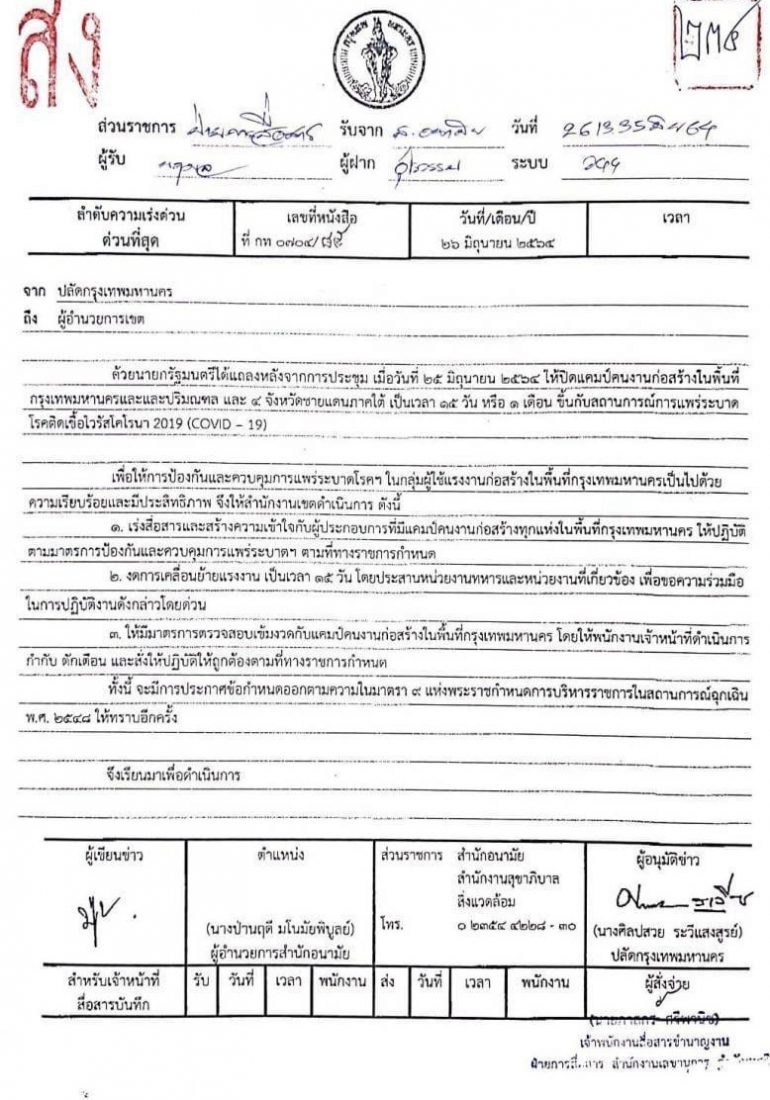 ส่ง
๒๓๕
ส่วนราชการ ฝ่ายการสื่อสาร รับจาก วันที่
ผู้รับ ผู้ฝาก ระบบ
ลำดับความเร่งด่วน เลขที่หนังสือ วันที่/เดือน/ปี เวลา
ด่วนที่สุด ที่ กท ๐๗๐๔/๘๙ ๒๖ มิถุนายน ๒๕๖๔
จาก ปลัดกรุงเทพมหานคร
ถึง ผู้อำนวยการเขต
ด้วยนายกรัฐมนตรีได้แถลงหลังจากการประชุม เมื่อวันที่ ๒๕ มิถุนายน ๒๕๖๔ ให้ปิดแคมป์คนงานก่อสร้างในพื้นที่
กรุงเทพมหานครและและปริมณฑล และ ๔ จังหวัดชายแดนภาคใต้ เป็นเวลา ๑๕ วัน หรือ ๑ เดือน ขึ้นกับสถานการณ์การแพร่ระบาด
โรคติดเชื้อไวรัสโคโรนา 2019 (COVID – 19)
เพื่อให้การป้องกันและควบคุมการแพร่ระบาดโรคฯ ในกลุ่มผู้ใช้แรงงานก่อสร้างในพื้นที่กรุงเทพมหานครเป็นไปด้วย
ความเรียบร้อยและมีประสิทธิภาพ จึงให้สำนักงานเขตดำเนินการ ดังนี้
๑. เร่งสื่อสารและสร้างความเข้าใจกับผู้ประกอบการที่มีแคมป์คนงานก่อสร้างทุกแห่งในพื้นที่กรุงเทพมหานคร ให้ปฏิบัติ
ตามมาตรการป้องกันและควบคุมการแพร่ระบาดฯ ตามที่ทางราชการกำหนด
๒. งดการเคลื่อนย้ายแรงงาน เป็นเวลา ๑๕ วัน โดยประสานหน่วยงานทหารและหน่วยงานที่เกี่ยวข้อง เพื่อขอความร่วมมือ
ในการปฏิบัติงานดังกล่าวโดยด่วน
๓. ให้มีมาตรการตรวจสอบเข้มงวดกับแคมป์คนงานก่อสร้างในพื้นที่กรุงเทพมหานคร โดยให้พนักงานเจ้าหน้าที่ดำเนินการ
กำกับ ตักเตือน และสั่งให้ปฏิบัติให้ถูกต้องตามที่ทางราชการกำหนด
ทั้งนี้ จะมีการประกาศข้อกำหนดออกตามความในมาตรา ๙ แห่งพระราชกำหนดการบริหารราชการในสถานการณ์ฉุกเฉิน
พ.ศ. ๒๕๔๘ ให้ทราบอีกครั้ง
จึงเรียนมาเพื่อดำเนินการ
ผู้เขียนข่าว ตำแหน่ง ส่วนราชการ สำนักอนามัย ผู้อนุมัติข่าว
สำนักงานสุขาภิบาล
สิ่งแวดล้อม
(นางป่านฤดี มโนมัยพิบูลย์) โทร. ๐ ๒๓๕๔ ๔๒๒๘ - ๓๐ (นางศิลปสวย ระวีแสงสูรย์)
ผู้อำนวยการสำนักอนามัย ปลัดกรุงเทพมหานคร
สำหรับเจ้าหน้าที่ รับ วันที่ เวลา พนักงาน ส่ง วันที่ เวลา พนักงาน ผู้สั่งจ่าย
สื่อสารบันทึก
เจ้าพนักงานสื่อสารชำนาญงาน
ฝ่ายการสื่อสาร สำนักงานเลขานุการ